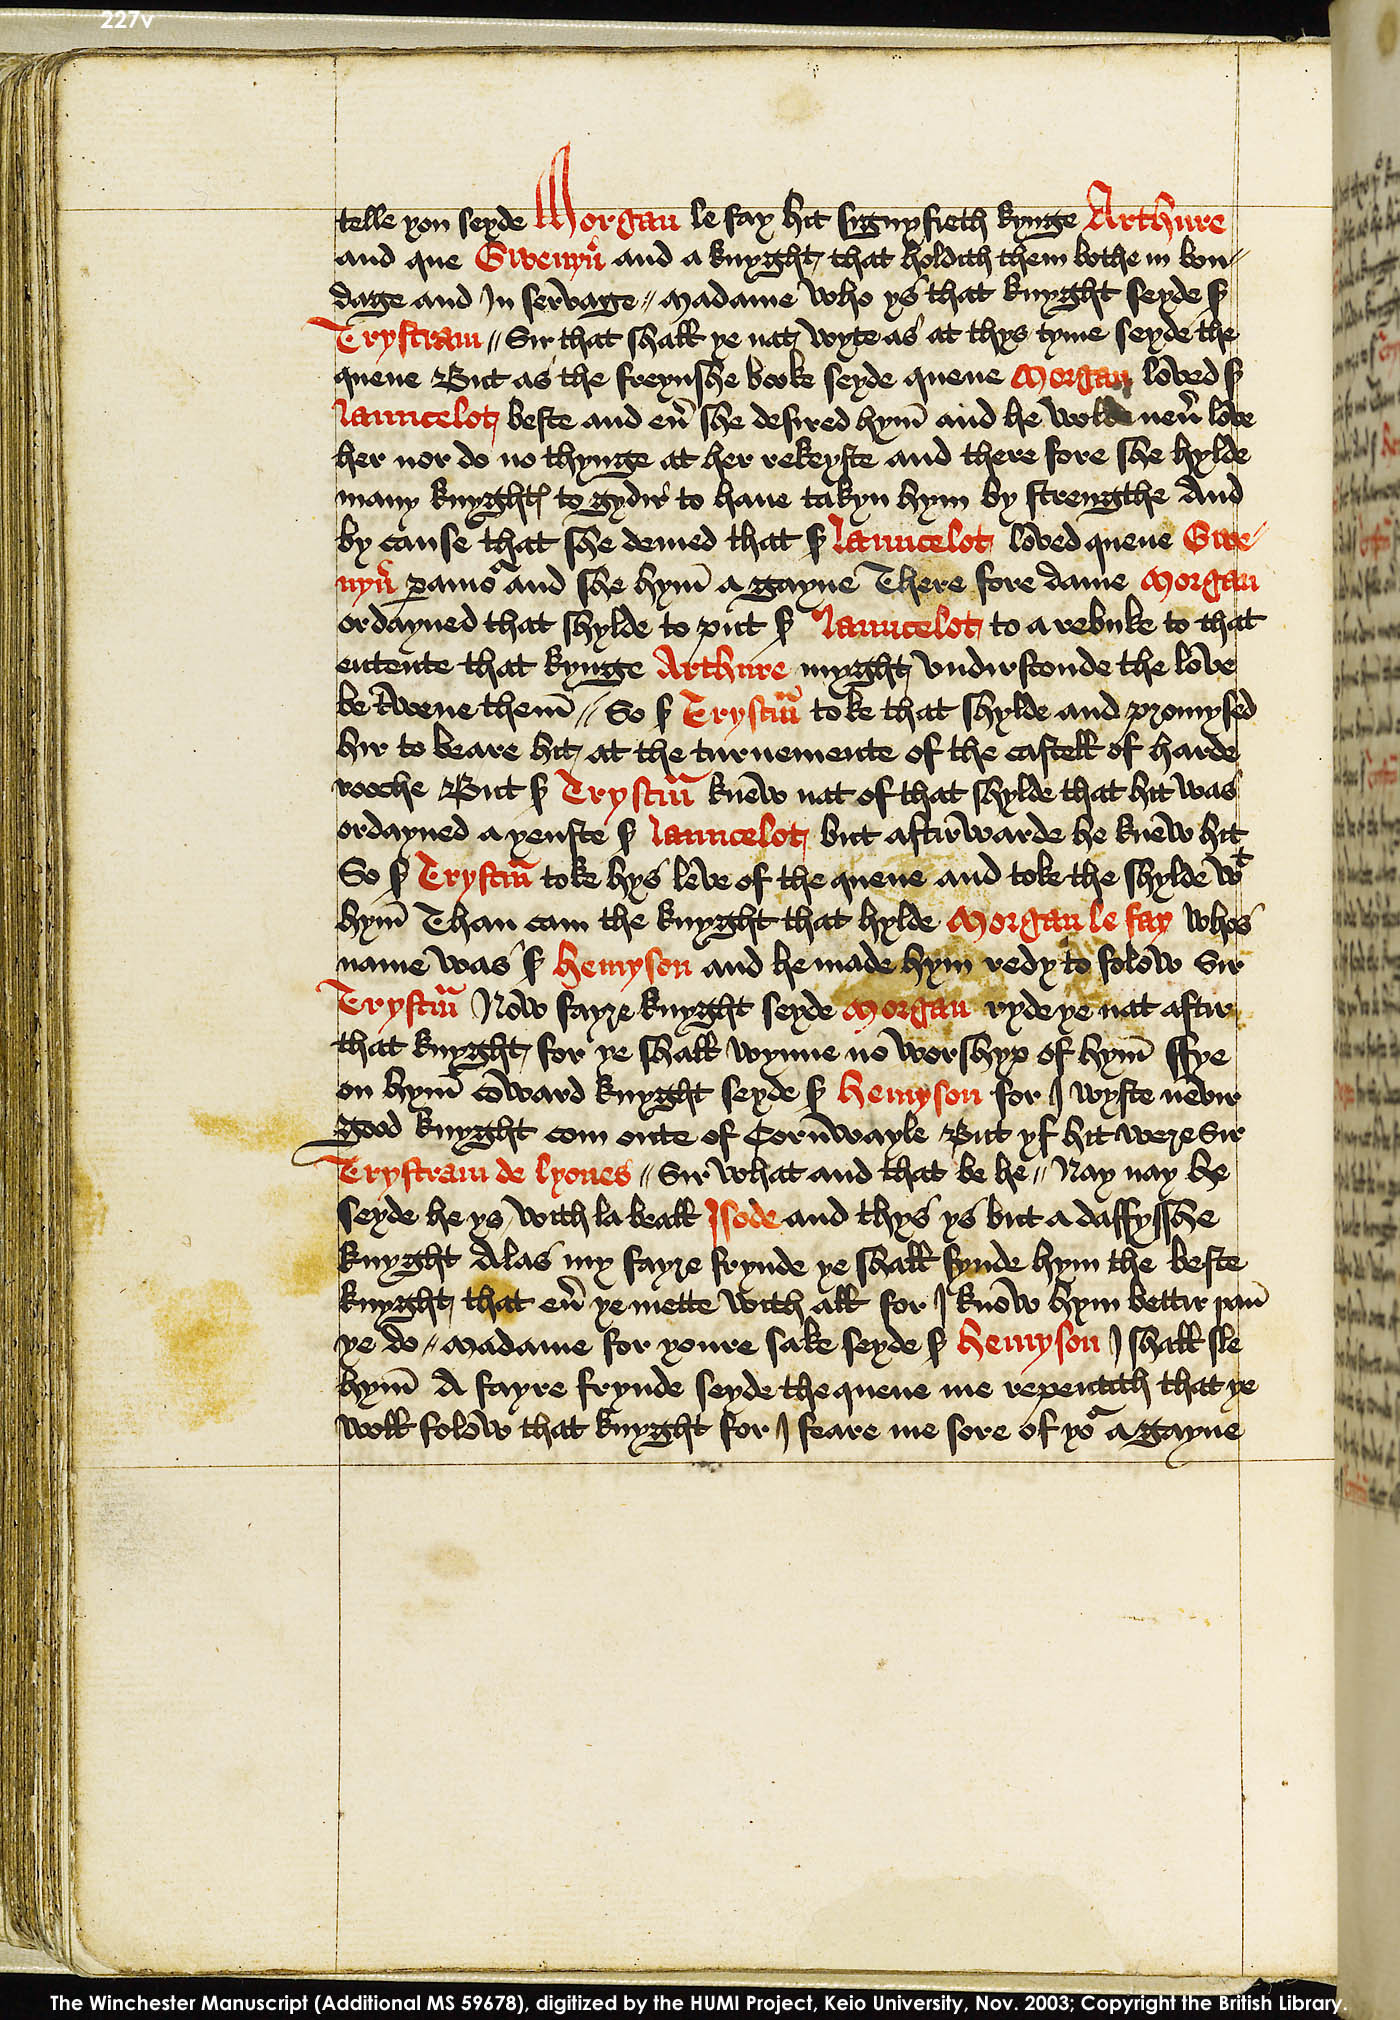 227v
telle you seyde Morgan le fay hit signyfieth kynge Arthure
and que Gwenyũ and a knyght that holdith them bothe in bon〃
dage and In servage〃 Madame who ys that knyght seyde ẜ
Trystram〃 Sir that shall ye nat wyte as at thys tyme seyde the
quene But as the freynshe booke seyde quene Morgan loved ẜ
launcelot beste and eṽ she desired hym̄ and he wolde neṽ love
her nor do no thynge at her rekeyste and there fore she hylde
many knyghtꝭ to gydir to haue takyn hym by strengthe And
by cause that she demed that ẜ launcelot loved quene Gwe〃
nyũ ꝑamoᵘ and she hym̄ a gayne There fore dame Morgan
ordayned that shylde to put ẜ launcelot to a rebuke to that
entente that kynge Arthure myght vndirstonde the love
be twene them̄〃 So ẜ Trystrm̄ toke that shylde and promysed
hir to beare hit at the turnemente of the castell of harde
rooche But ẜ Trystrm̄ knew nat of that shylde that hit was
ordayned a yenste ẜ launcelot but aftirwarde he knew hit
So ẜ Trystrm̄ toke hys leve of the quene and toke the shylde wᵗ
hym̄ Than cam the knyght that hylde Morgan le fay whos
name was ẜ Hemyson and he made hym redy to folow Sir
Trystrm̄ Now fayre knyght seyde Morgan ryde ye nat aftir
that knyght for ye shall wynne no worshyp of hym̄ ffye
on hym̄ coward knyght seyde ẜ Hemyson for I wyste nevir
good knyght com oute of Cornwayle But yf hit were Sir
Trystram de lyones〃 Sir what and that be he〃 Nay nay he
seyde he ys with la beall Isode and thys ys but a daffysshe
knyght Alas my fayre frynde ye shall fynde hym the beste
knyght that eṽ ye mette with all for I know hym bettir þan̄
ye do〃 Madame for youre sake seyde ẜ Hemyson I shall sle
hym̄ A fayre frynde seyde the quene me repentith that ye
woll folow that knyght for I feare me sore of yoᵘ a gayne
The Winchester Manuscript (Additional MS 59678), digitized by the HUMI Project, Keio University, Nov. 2003; Copyright the British Library.